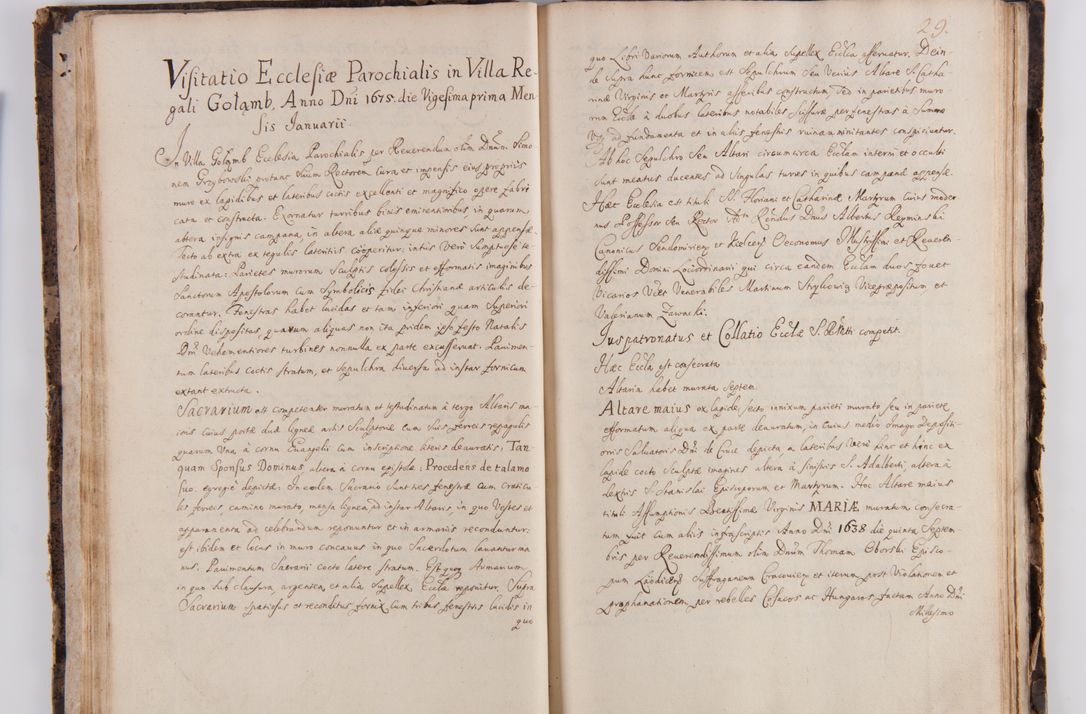 Visitatio Ecclesiæ Parochialis in Villa Re-
gali Gołąmb, Anno Dni 1675. die Vigesima prima Men-
sis Ianuarii.
In Villa Gołąmb Ecclesia Parochialis per Reuerendum olim Dnum Simo-
nem Grzybowski protunc suum Rectorem cura et impensis eius propriis
muro ex lapidibus et lateribus coctis excellenti et magnifico opere fabri
cata et constructa. Exornatur turribus binis eminentioribus in quarum
altera insignis campana, in altera aliæ quinque minores sunt appensæ.
Tecto ab extra ex tegulis lateritiis cooperitur: intus Verò sumptuose te-
studinata: Parietes murorum Sculptis colossis et efformatis imaginibus
Sanctorum Apostolorum cum Symbolicis fidei Christianæ articulis de-
corantur. Fenestras habet lucidas et tam inferiori quam Superiori
ordine dispositas, quarum aliquas non ita pridem ipso festo Natalis
Dni Vehementiores turbines nonnulla ex parte excusserunt. Pauimen-
tum lateribus coctis stratum, et sepulchra diuersa ad instar fornicum
extant extructa.
Sacrarium est competenter muratum et testudinatum à tergo Altaris ma-
ioris cuius portæ duæ ligneæ artis Sculptoriæ cum suis ferreis repagulis
quarum Una, à cornu Euangelii cum inscriptione literis deauratis: Tan-
quam Sponsus Dominus, altera à cornu epistolæ: Procedens de talamo
suo. egregiè depictæ. In eodem Sacrario sunt tres fenestræ cum craticu-
lis ferreis, camino murato, mensa lignea ad instar Altaris in quo Vestes et
apparamenta ad celebrandum reponuntur et in armariis reconduntur:
est ibidem et locus in muro concauus in quo Sacerdotum lauantur ma-
nus. Pauimentum Sacrarii cocto latere stratum. Est quoq Armarium
in quo sub clausura, argentea, et alia Supellex Eccla reponitur. Supra
Sacrarium spatiosus et reconditus fornix cum tribus fenestris lucidis in
quo
29.
quo Libri Variorum Authorum et alia Supellex Ecclia asseruatur. Dein-
de supra hunc fornicem est Sepulchrum seu Verius Altare S. Catha-
rinæ Virginis et Martyris asseribus constructum, sed in parietibus muro-
rum Eccla à duobus lateribus notabiles fissuræ per fenestras à summo
Vsq ad fundamenta et in aliis fenestris ruinam minitantes conspiciuntur.
Ab hoc Sepulchro seu Altari circumcirca Ecclam interni et occulti
sunt meatus ducentes ad singulas turres in quibus campanæ appensæ.
Hæc Ecclesia est tituli SS. Floriani et Catharinæ Martyrum cuius moder
nus Possessor seu Rector Adm Rendus Dnus Albertus Reyminski
Canonicus Sendomirien et Kielcen Oeconomus Illustissimi et Reueren-
dissimi Domini Loci ordinarii qui circa eandem Ecclam duos fouet
Vicarios Vdzt Venerabiles Martinum Vicepræpositum et
Valerianum Zawacki.
Iuspatronatus et Collatio Ecclæ S. R. Mtti competit.
Hæc Eccla est consecrata
Altaria habet murata Septem
Altare maius ex lapide secto innixum parieti murato seu in pariete
efformatum aliqua ex parte deauratum, in cuius medio Imago Depositi-
onis Saluatoris Dni de Cruce depicta, a lateribus Verò hinc et hinc ex
lapide cocto Sculptæ imagines altera à sinistris S. Adalberti, altera à
dextris S. Stanislai Episcoporum et Martyrum. Hoc Altare maius
tituli Assumptionis Beatissimæ Virginis MARIÆ muratum consecra-
tum fuit cum aliis infrascriptis Anno Dni 1638 die quinta Septem
bris per Reuerendissimum olim Dnum Thomam Oborski Episco-
pum Laodicen Suffraganeum Cracouien et iterum post Violationem et
prophanationem per rebelles Cosacos ac Hungaros factam Anno Dni
Millesimo